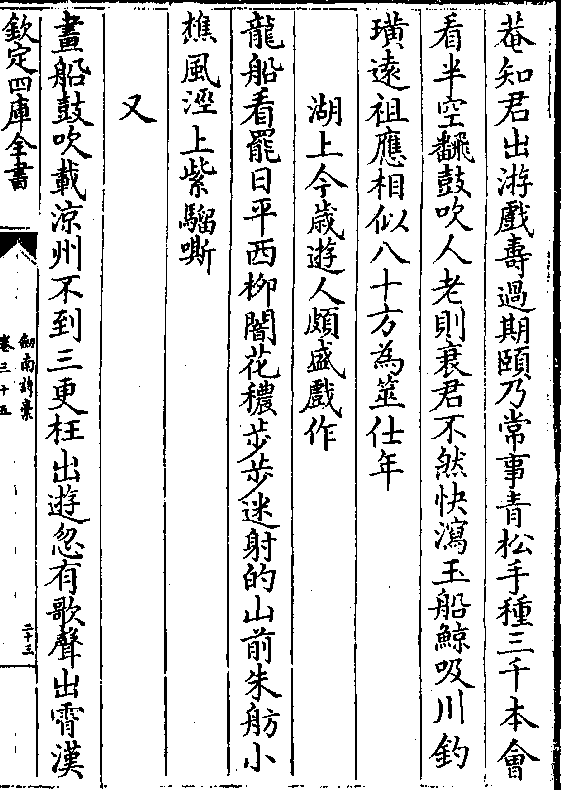 菴知君出游戲壽過期頤乃常事青松手種三千本會
看半空翻鼓吹人老則衰君不然快瀉玉船鯨吸川釣
璜遠祖應相似八十方為筮仕年
湖上今歳遊人頗盛戲作
龍船看罷日平西柳闇花穠步步迷射的山前朱舫小
樵風涇上紫騮嘶
又
畫船鼓吹載涼州不到三更枉出遊忽有歌聲出霄漢
欽定四庫全書
劍南詩稾
卷三十五
二十三